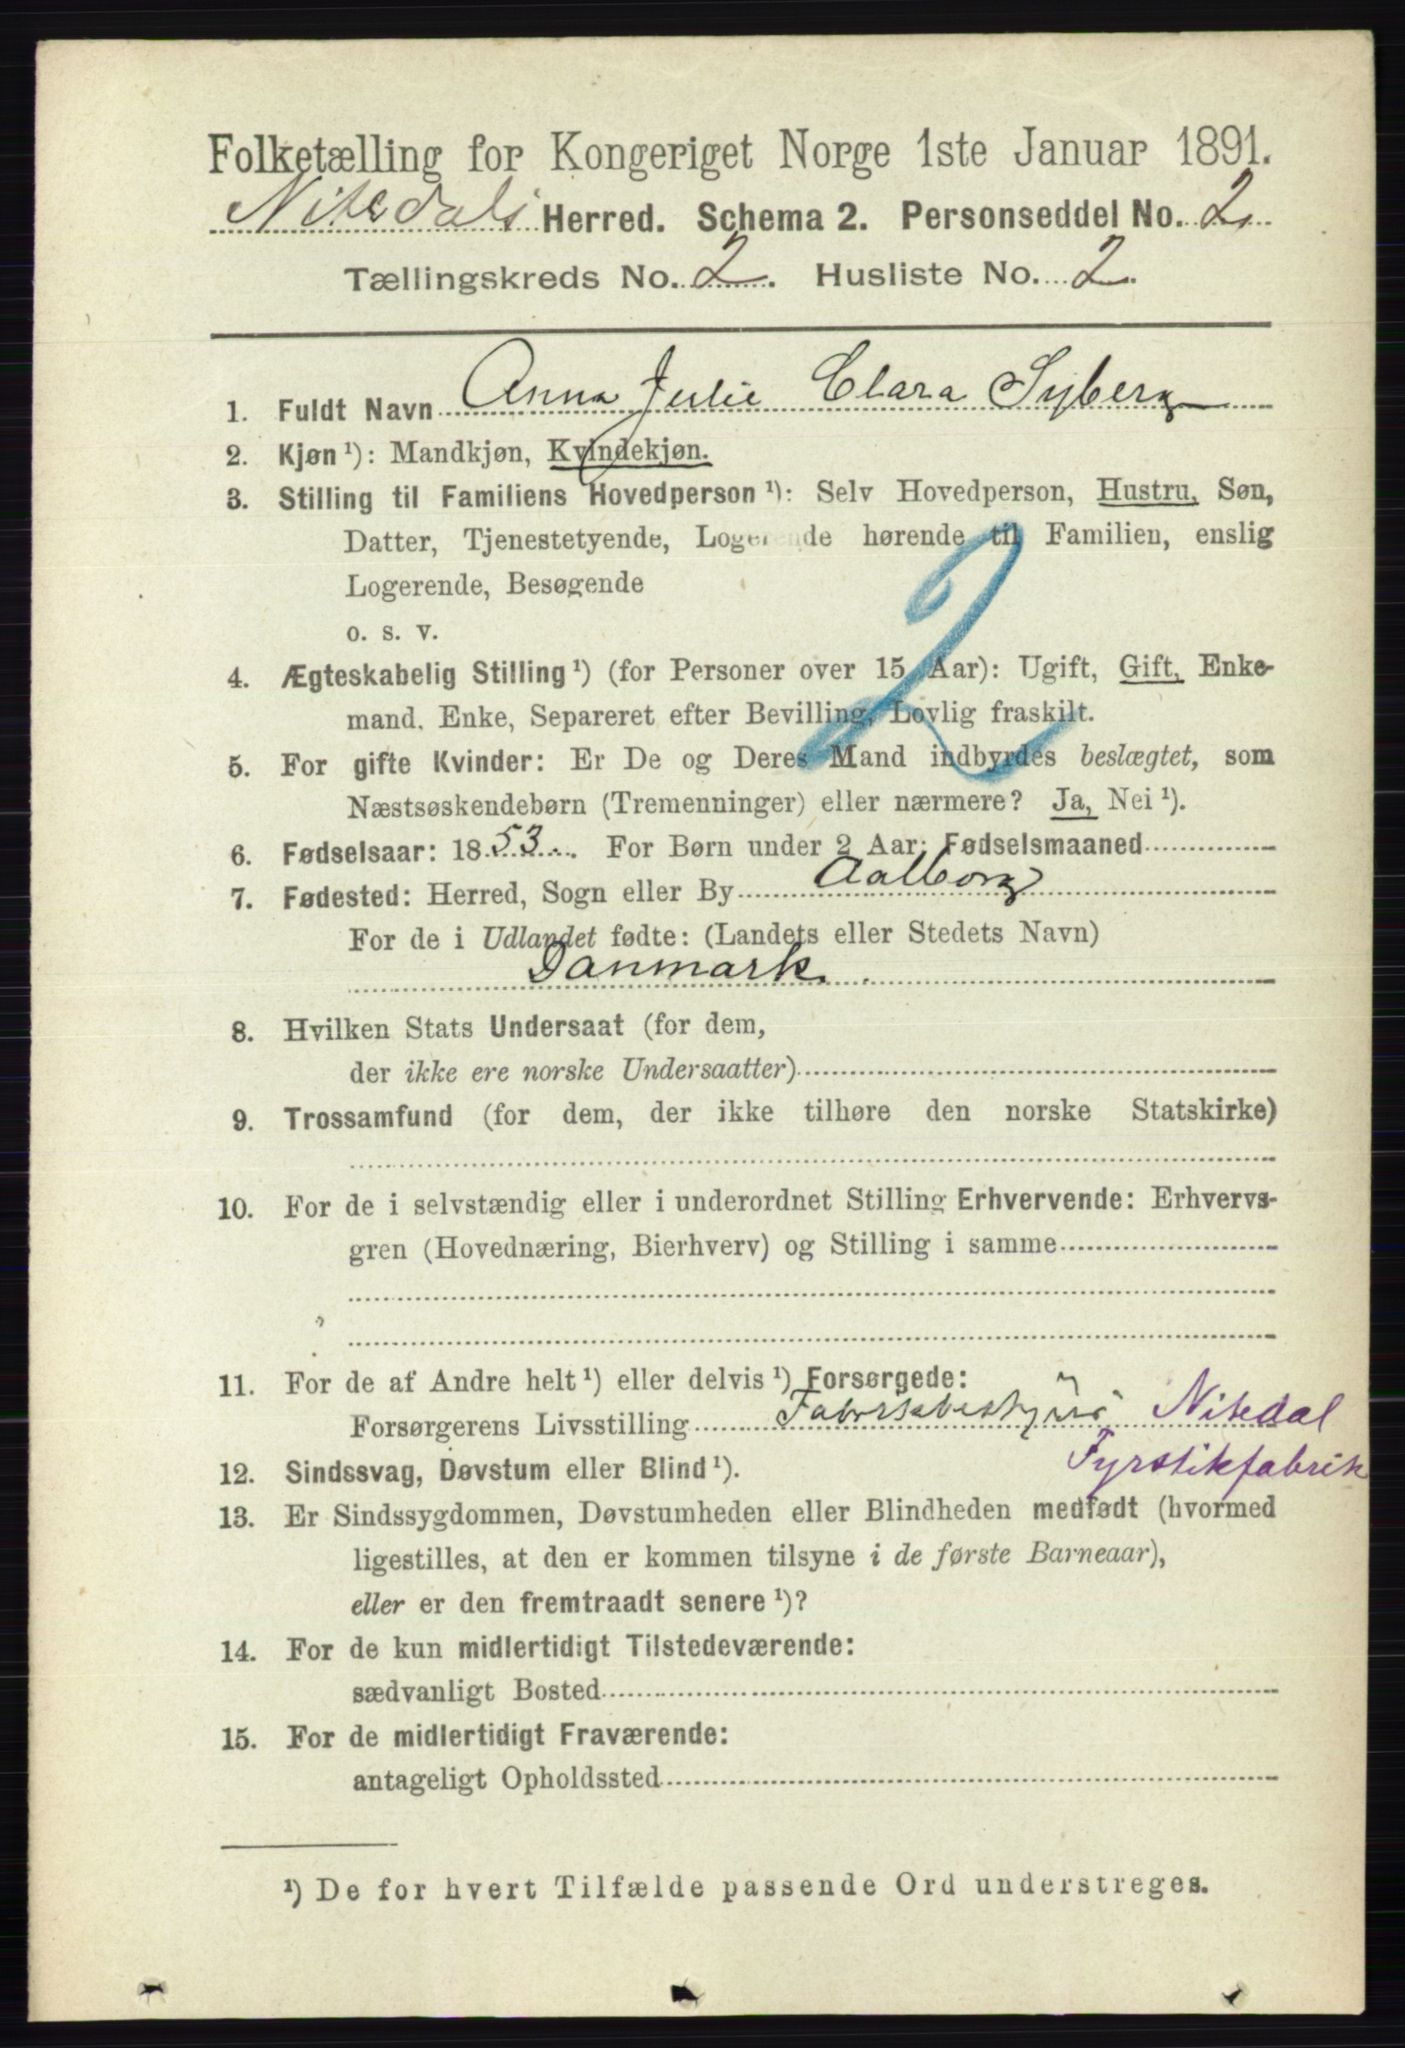 Folketælling for Kongeriget Norge 1ste Januar 1891.
Nitedals Herred. Schema 2. Personseddel No. 2.
Tællingskreds No. 2. Husliste No. 2.
1. Fuldt Navn Anna Julie Clara Syberg
2. Kjøn ¹): Mandkjøn, Kvindekjøn.
3. Stilling til Familiens Hovedperson ¹): Selv Hovedperson, Hustru, Søn,
Datter, Tjenestetyende, Logerende hørende til Familien, enslig
Logerende, Besøgende
o. s. v.
2
4. Ægteskabelig Stilling ¹) (for Personer over 15 Aar): Ugift, Gift, Enke-
mand, Enke, Separeret efter Bevilling, Lovlig fraskilt.
5. For gifte Kvinder: Er De og Deres Mand indbyrdes beslægtet, som
Næstsøskendebørn (Tremenninger) eller nærmere? Ja, Nei ¹).
6. Fødselsaar: 1853. For Børn under 2 Aar: Fødselsmaaned
7. Fødested: Herred, Sogn eller By Aalborg
For de i Udlandet fødte: (Landets eller Stedets Navn)
Danmark.
8. Hvilken Stats Undersaat (for dem,
der ikke ere norske Undersaatter)
9. Trossamfund (for dem, der ikke tilhøre den norske Statskirke)
10. For de i selvstændig eller i underordnet Stilling Erhvervende: Erhvervs-
gren (Hovednæring, Bierhverv) og Stilling i samme
11. For de af Andre helt ¹) eller delvis ¹) Forsørgede:
Forsørgerens Livsstilling Fabrikbestyrer Nitedal
Fyrstikfabrik
12. Sindssvag, Døvstum eller Blind ¹).
13. Er Sindssygdommen, Døvstumheden eller Blindheden medfødt (hvormed
ligestilles, at den er kommen tilsyne i de første Barneaar),
eller er den fremtraadt senere ¹)?
14. For de kun midlertidigt Tilstedeværende:
sædvanligt Bosted
15. For de midlertidigt Fraværende:
antageligt Opholdssted
¹) De for hvert Tilfælde passende Ord understreges.